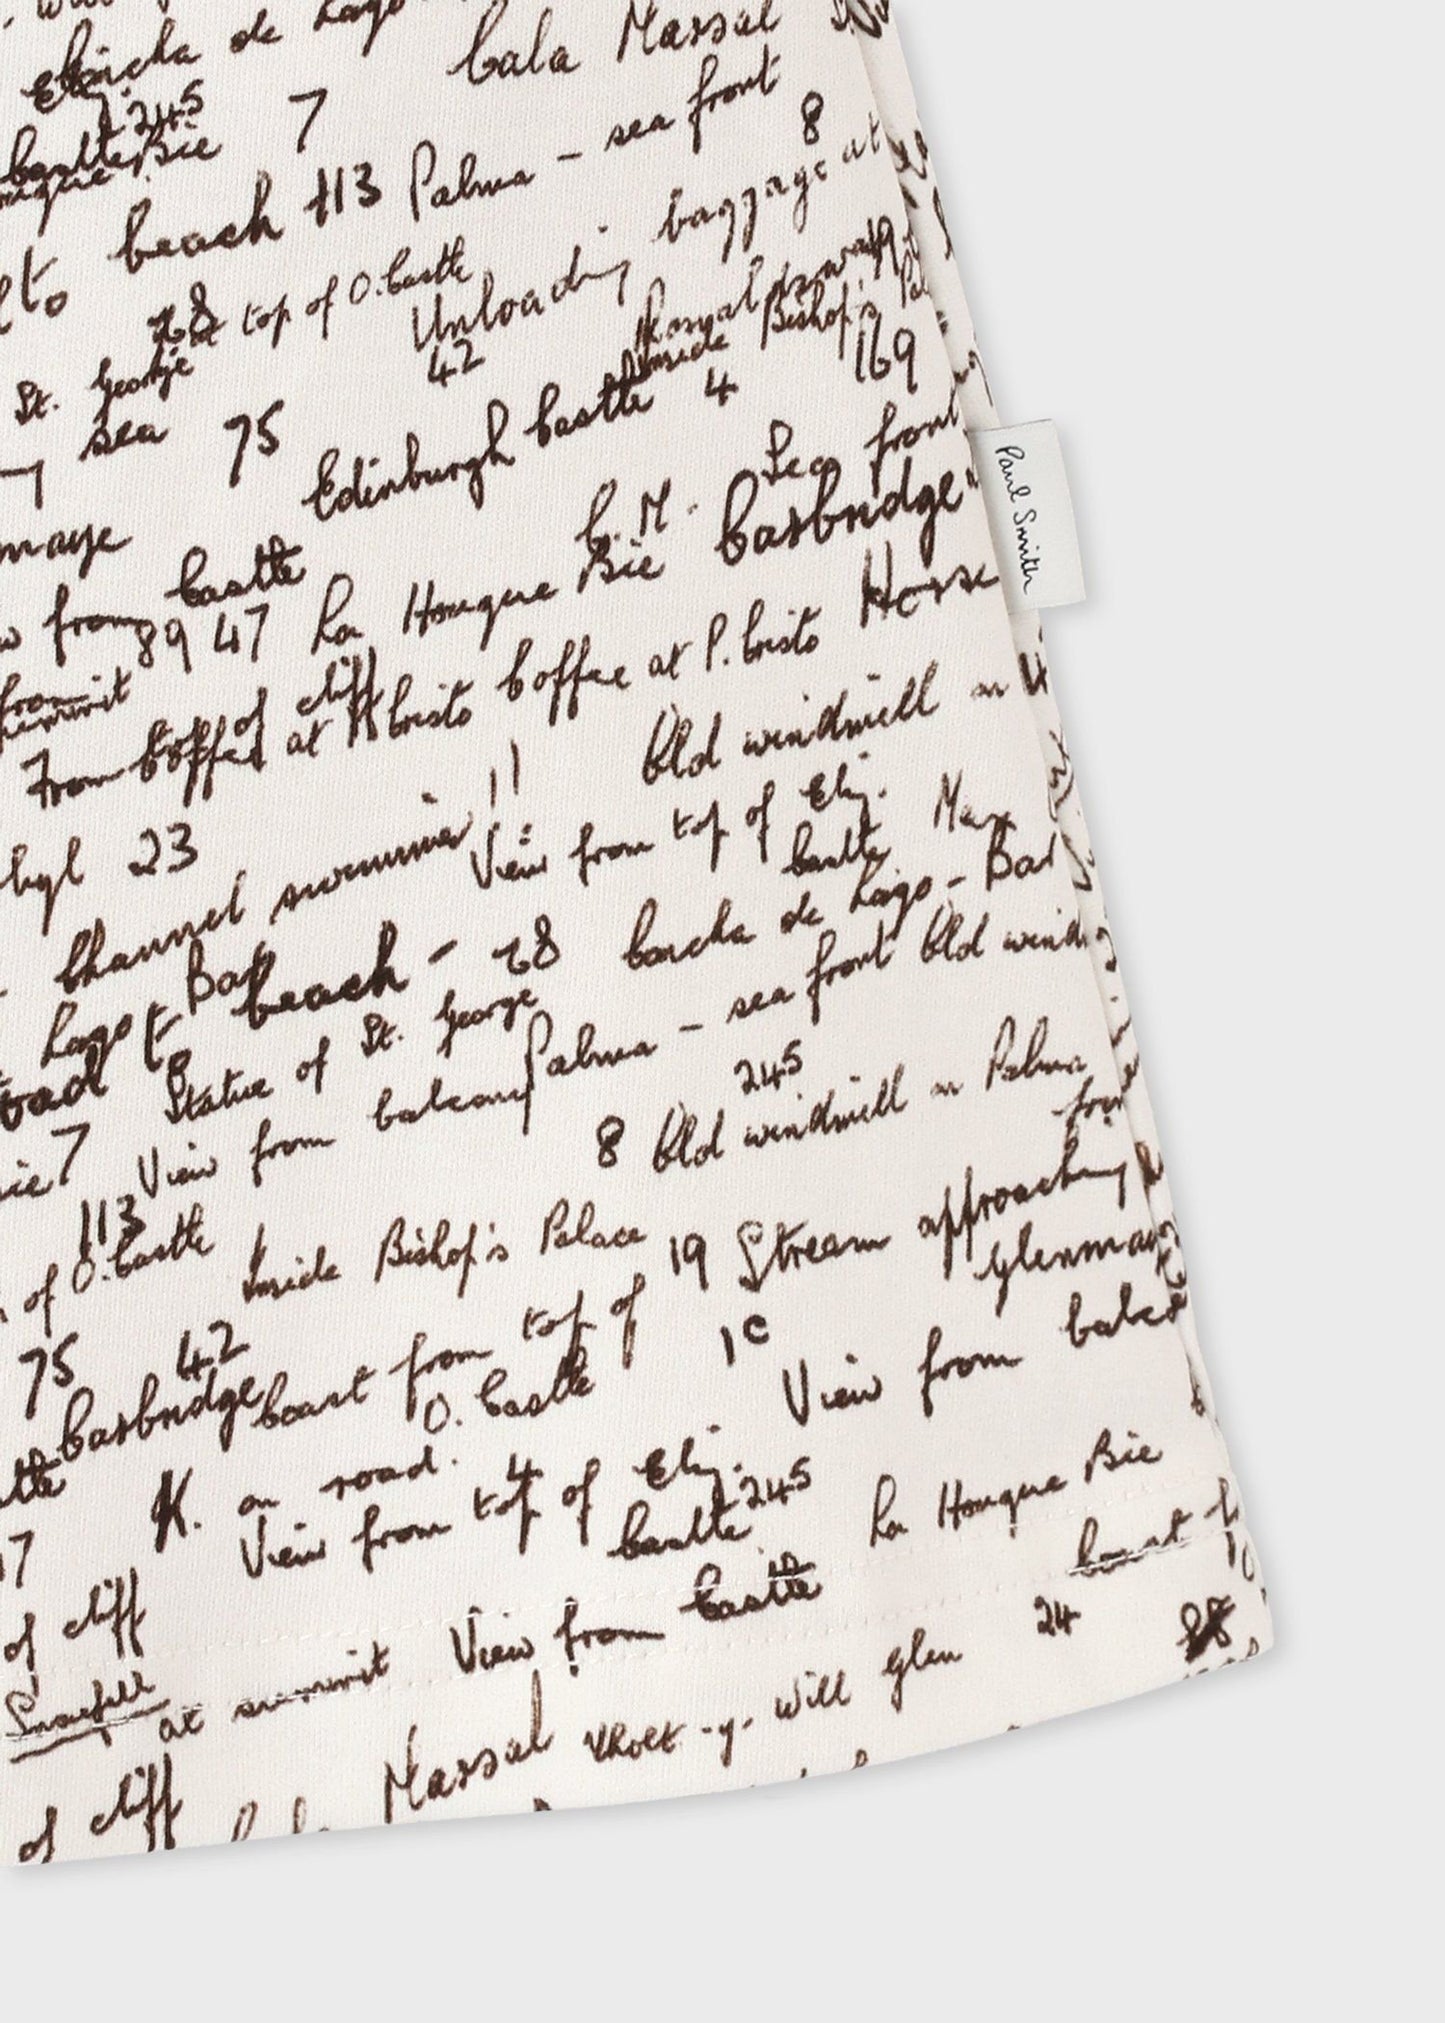 de Lago
Cala Massal
245
Bie 7
beach 113 Palma - sea front
8
to
28 at top of O. Castle
Unloading baggage at
St. George
42
Inside Bishop's Pal
19
169
sea 75
Edinburgh Castle 4
Sea front
maye
C. M.
from Castle
89 47 La Hougue Bie Casbridge"
summit
of cliff
From top
Coffee at P. Cristo Coffee at P. Cristo Horse
Old windmill in
23
View from top of Eliz.
Castle
Channel swimmer !!
Max
Lago - Bar
to beach - 28
Concha de Lago - Bar
Statue of St. George
Palma - sea front Old wind
oad
7
View from balcony
245
8 Old windmill in Palma
113
from
of O. Castle
Inside Bishop's Palace
19 Stream approaching
Glenmaye
75 42
Casbridge
Coast from top of
O. Castle
1c
View from balco
K. on road.
4
View from top of Eliz.
Castle
245
La Hougue Bie
17
of cliff
Coast
Snaefell
at summit
View from Castle
24
88
of cliff
Massal
will glen
Paul Smith